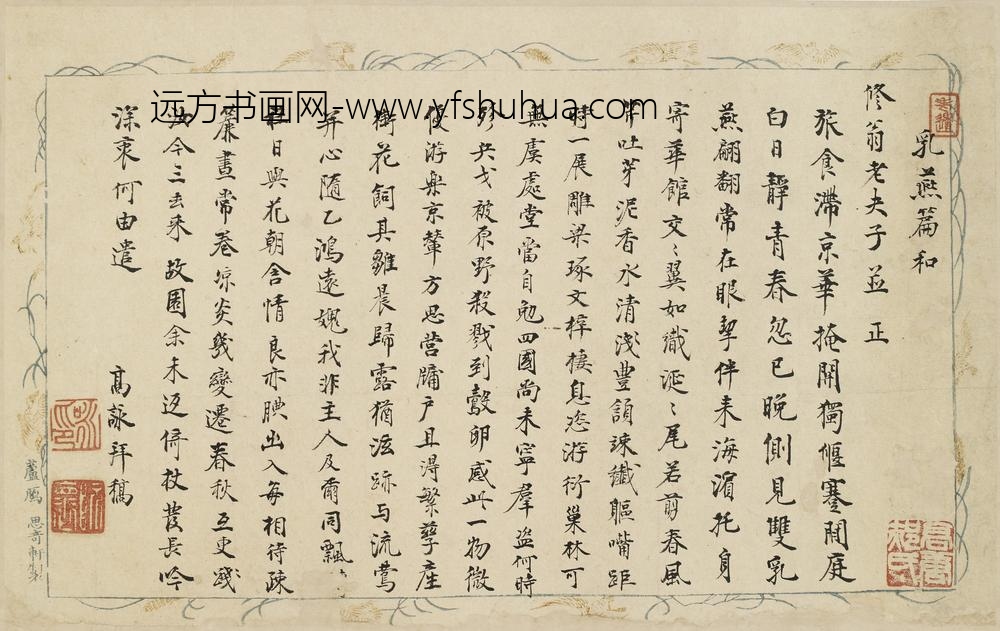 远方书画网-www.yfshuhua.com
乳燕篇和
修翁老夫子並正
旅食滯京華掩關獨偃蹇閒庭
白日靜青春忽已晚側見雙乳
燕翩翩常在眼挈伴来海濱托身
寄華館交〻翼如識涎〻尾若剪春風
芹吐芽泥香水清浅豊頷竦纖軀嘴距
時一展雕梁琢文梓棲息恣游衍巢林可
無虞處堂當自勉四國尚未寧羣盗何時
殄兵戈被原野殺戮到鷇卵感此一物微
優游樂京輦方思營牖户且得繁孳產
銜花飼其雛晨歸露猶泫跡与流鶯
并心随乙鴻遠媿我非主人及爾同飄〻
日與花朝含情良亦腆出入每相待疎
簾晝常卷涼炎幾變遷春秋互更踐
汝今三去来故園余未返倚杖發長吟
深衷何由遣
高詠拜稿
蘆鴈 思奇軒製